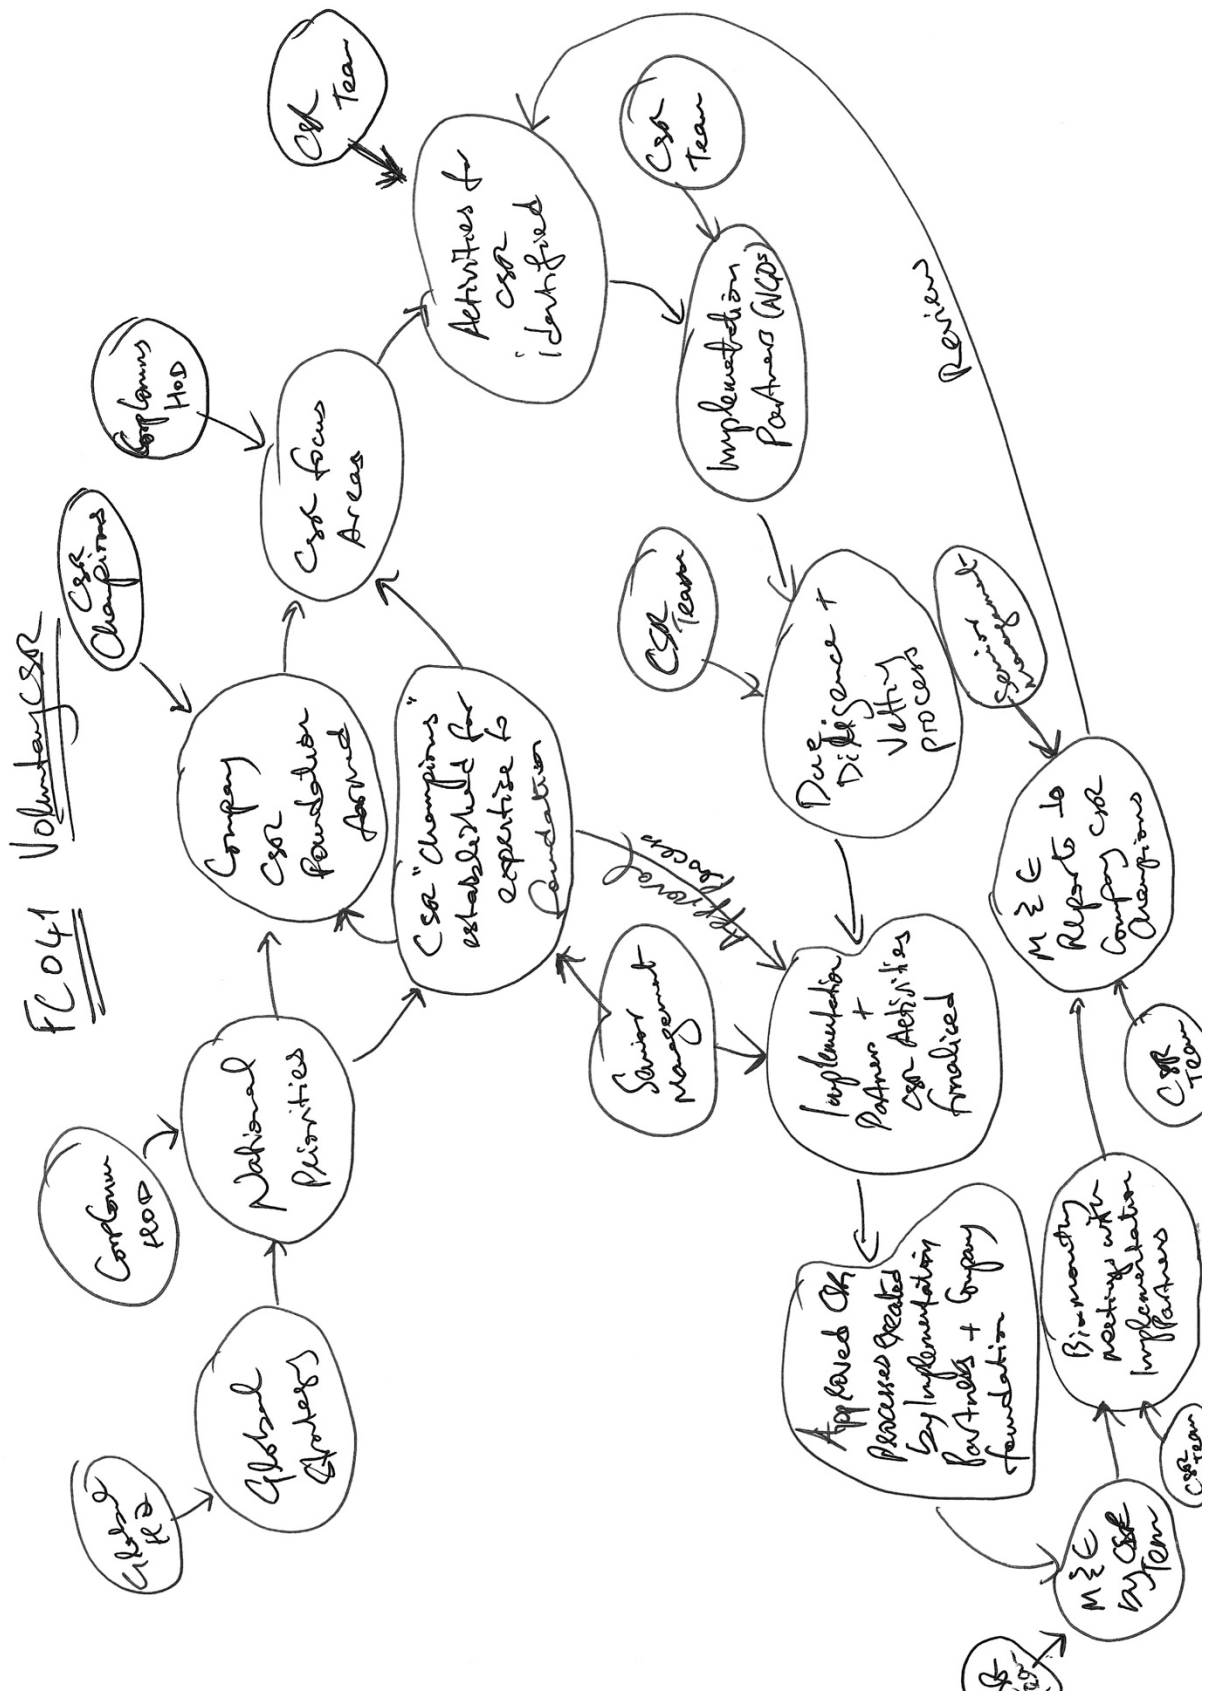 FC041 Voluntary CSR
Global
HQ
Global
Strategy
Corpcomm
HOD
National
Priorities
CSR
Champions
Company
CSR
Foundation
formed
CSR "Champions"
established for
expertise to
foundation
Corpcomms
HOD
CSR focus
Areas
CSR
Team
Activities for
CSR
identified
CSR
Team
Implementation
Partners (NGOs)
CSR
Team
Due
Diligence +
Vetting
process
Senior
Management
Approval
Process
Implementation
Partner +
CSR Activities
finalised
Approved CSR
Processes created
by Implementation
Partners + Company
foundation
M & E
by CSR
Team
CSR
Team
Bimonthly
meetings with
Implementation
Partners
CSR
Team
M & E
Report to
Company CSR
Champions
Senior
Management
Review